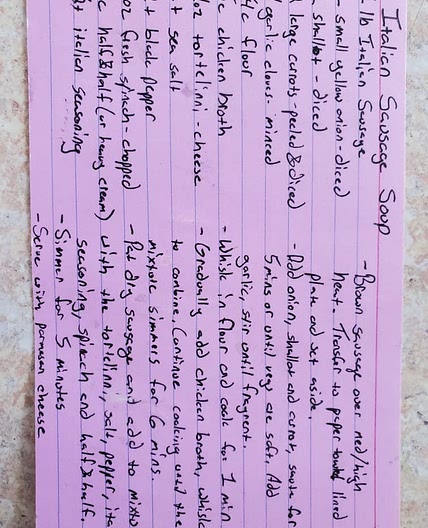 Italian Sausage Soup
lb Italian Sausage
- small yellow onion - diced
shallot - diced
large carrots - peeled & diced
garlic cloves - minced
c flour
c chicken broth
oz tortelinni - cheese
t sea salt
t black pepper
oz fresh spinach - chopped
c half & half (or heavy cream)
t italian seasoning
- Brown sausage over med/high
heat. Transfer to paper towel lined
plate and set aside.
- Add onion, shallot and carrot, saute for
5 mins or until veg are soft. Add
garlic, stir until fragrent.
- Whisk in flour and cook for 1 min
- Gradually add chicken broth, whisk
to combine. Continue cooking until the
mixture simmers for 6 mins.
- Pat dry sausage and add to mixtu
with the tortelinni, salt, pepper, ita
seasoning, spinach and half & half.
- Simmer for 5 minutes
- Serve with parmasan cheese